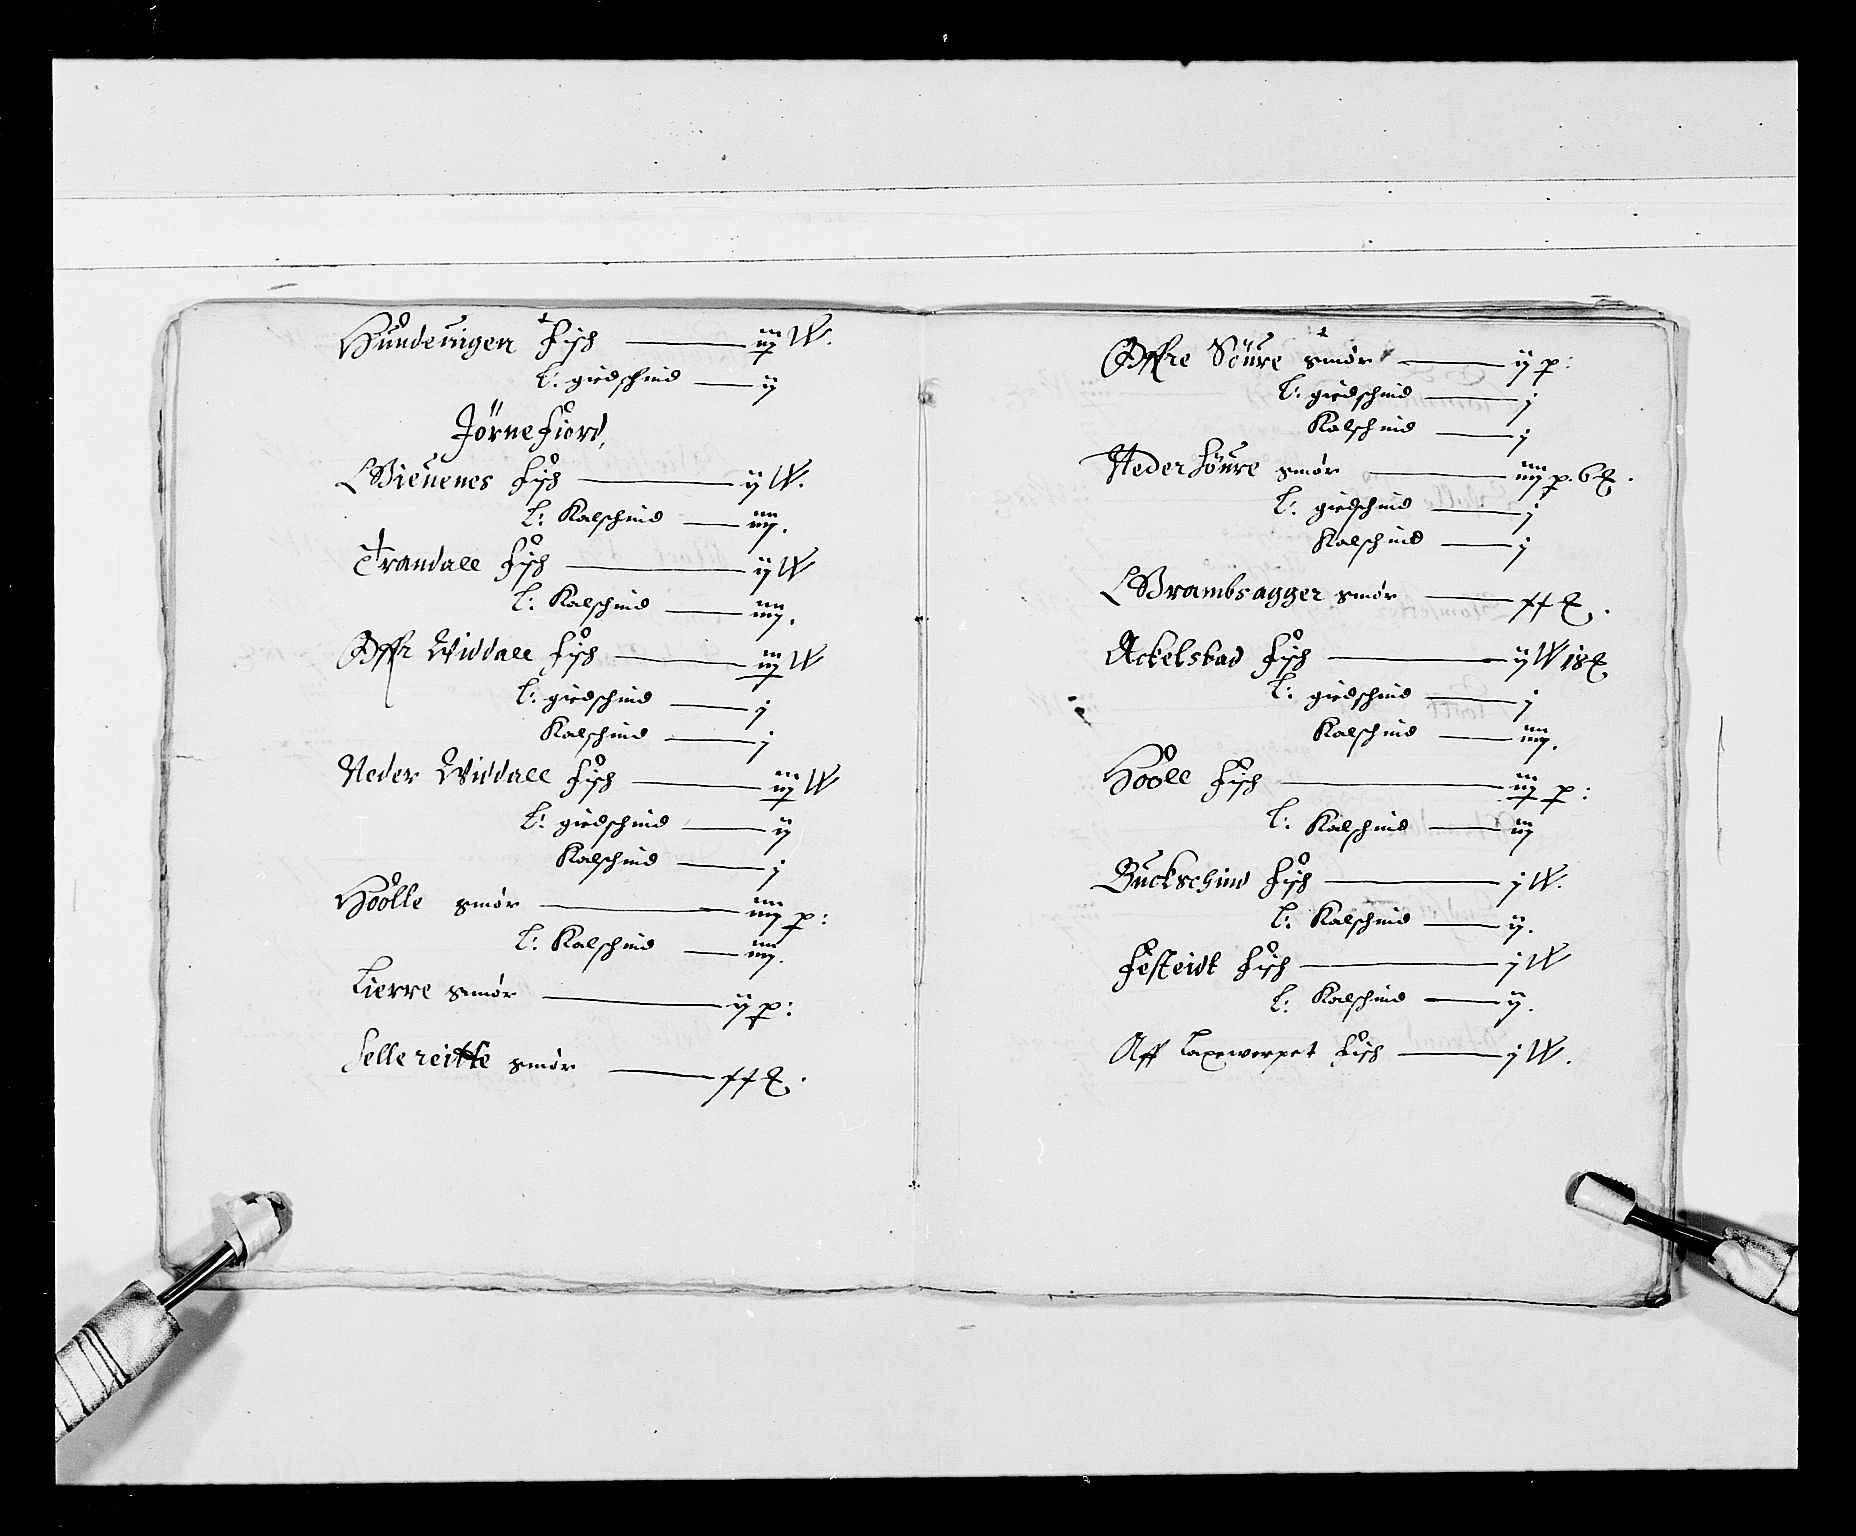 Hundeuigen Fisch — iij W.
L: giedschind — ij
Jörnefiord,
Bieuenes Fisch — ij W.
L: Kalschind — iiij.
Trandall Fisch — ij W
L: Kalschind — iiij.
Offr Widdall Fisch — W
L: giedschind — j
Kalschind — j
Neder Widdall Fisch — W
L: giedschind — ij
Kalschind — j
Hoolle smör — iiij p:
L: Kalschind — iiij.
Lierre smör — ij p:
Sellereitte smör —
Offre Söure smör — ij p:
L: giedschind — j
Kalschind — j
Neder Söure smör — iiij p. 6
L: giedschind — j
Kalschind — j
Brambsagger smör —
Ackelsbad Fisch — ij W 18
L: giedschind — j
Kalschind — iiij.
Hooll Fisch — p:
L: Kalschind — iij
Buckschind Fisch — j W.
L: Kalschind — ij.
Festeidt Fisch — j W
L: Kalschind — ij.
Aff Laxewerpet Fisch — j W.